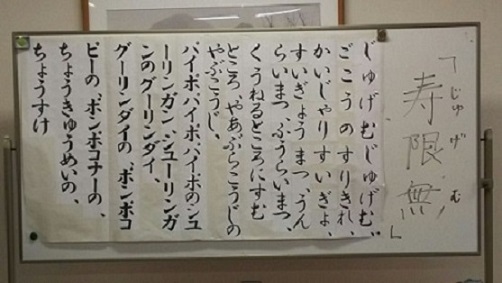 「寿限無」
じゅげむ
じゅげむじゅげむ、
ごこうのすりきれ、
かいじゃりすいぎょ、
すいぎょうまつ、うん
らいまつ、ふうらいまつ、
くうねるところにすむ
ところ、やあぶらこうじの
やぶこうじ。
パイポ、パイポ、パイポのシュ
ーリンガン、シューリンガ
ンのグーリンダイ、
グーリンダイの、ポンポコ
ピーの、ポンポコナーの、
ちょうきゅうめいの、
ちょうすけ